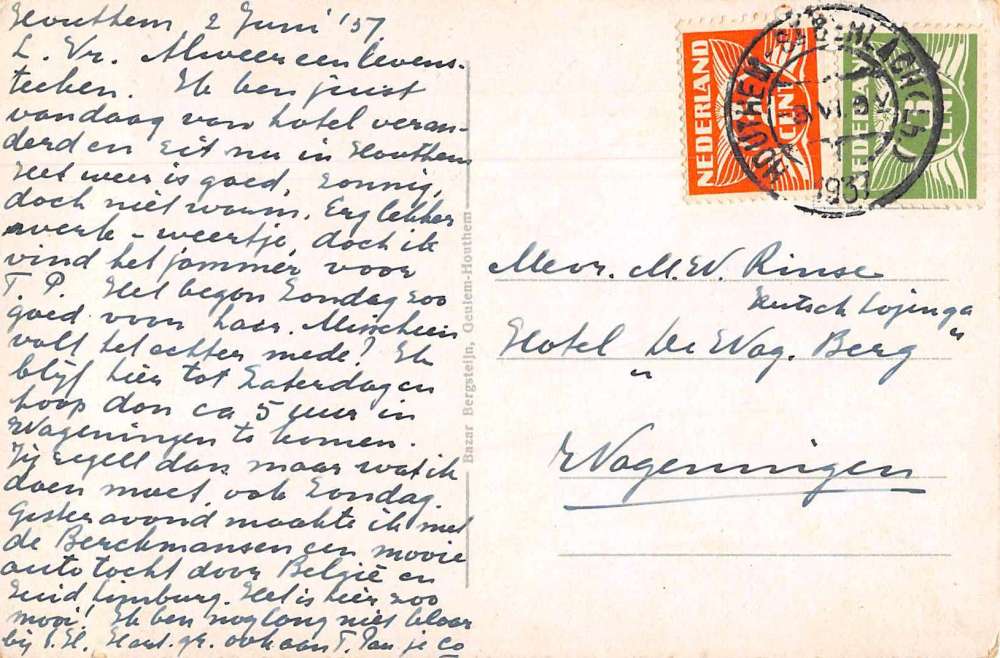 Houthem 2 Juni '37
L. Vr. Alweer een levens-
teeken. Ik ben juist
vandaag van hotel veran-
derd en zit nu in Houthem
Het weer is goed, zonnig,
doch niet warm. Erg lekker
werk-weertje, doch ik
vind het jammer voor
T. P. Het begon Zondag zoo
goed voor haar. Misschien
valt het achter mede? Ik
blijf hier tot Zaterdag en
hoop dan ca 5 uur in
Wageningen te komen.
Jij regelt dan maar wat ik
doen moet, ook Zondag.
Gisteravond maakte ik met
de Berckmansen een mooie
autotocht door België en
Zuid Limburg. Het is hier zoo
mooi! Ik ben nog lang niet klaar
bij
Hart. gr. ook aan T. van je Co
Bazar Bergsteijn, Geulem-Houthem
NEDERLAND
CENT
NEDERLAND
CENT
HOUTHEM
1937
Mevr. M. W. Rinse
Hotel "De Wag. Berg"
Wageningen